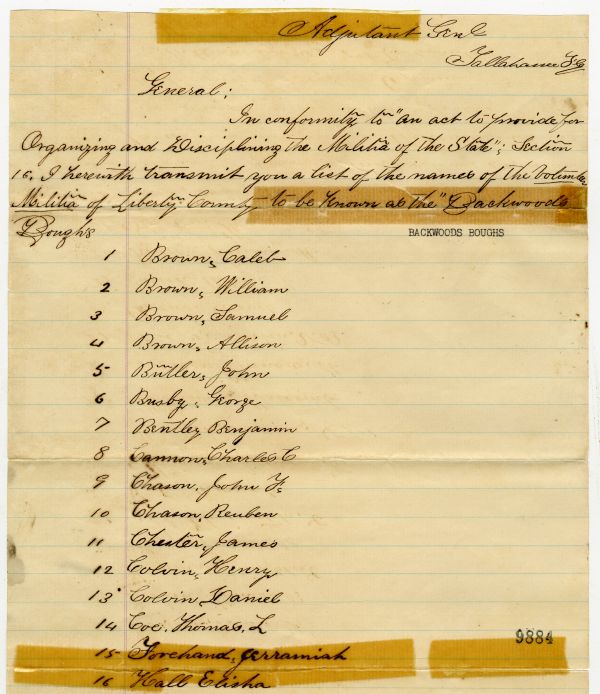 Adjutant Genl
Tallahassee Fla
General;
In conformity to "an act to provide for
Organizing and Disciplining the Militia of the State"; Section
16. I herewith transmit you a list of the names of the Volunteer
Militia of Liberty County to be known as the "Backwoods
Boughs
BACKWOODS BOUGHS
1 Brown, Caleb
2 Brown, William
3 Brown, Samuel
4 Brown, Allison
5 Butler, John
6 Busby, George
7 Bentley Benjamin
8 Cannon, Charles C
9 Chason, John F.
10 Chason, Reuben
11 Chester, James
12 Colvin, Henry
13 Colvin, Daniel
14 Coe, Thomas, L
9884
15 Forehand, Jerramiah
16 Hall Elisha